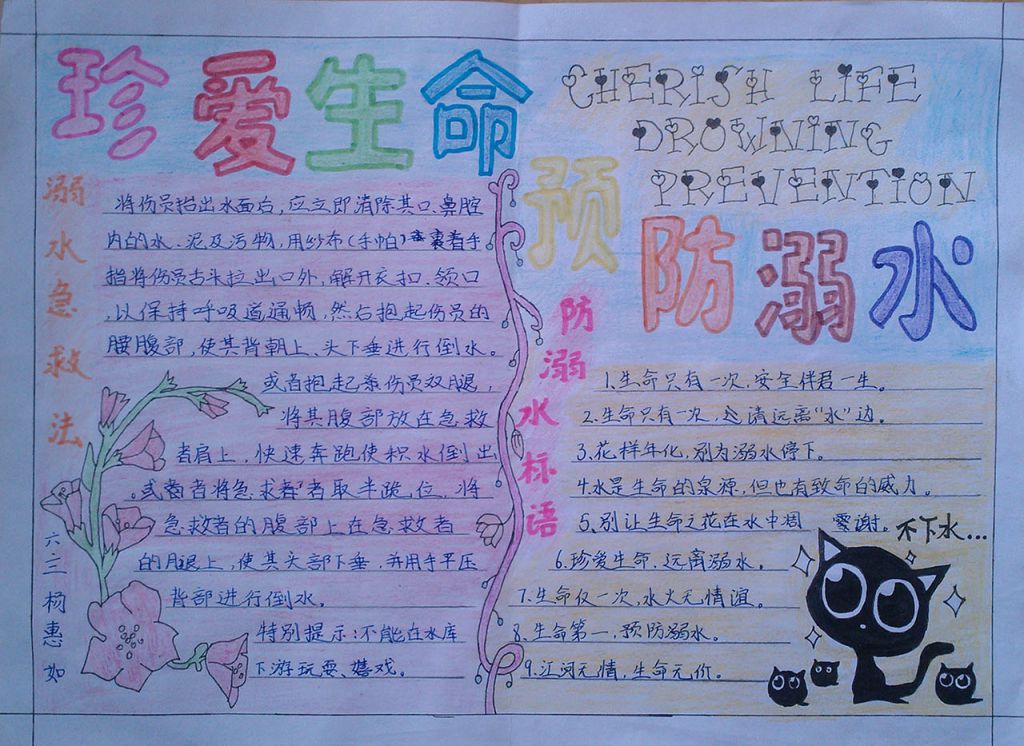 珍爱生命
CHERISH LIFE
DROWNING
PREVENTION
预防溺水
溺水急救法
将伤员抬出水面后,应立即清除其口、鼻腔
内的水、泥及污物,用纱布(手帕)裹着手
指将伤员舌头拉出口外,解开衣扣、领口
,以保持呼吸道通畅,然后抱起伤员的
腰腹部,使其背朝上、头下垂进行倒水。
或者抱起伤员双腿,
将其腹部放在急救
者肩上,快速奔跑使积水倒出
。或者将急求者取半跪,位,将
急救者的腹部上在急救者
的月腿上,使其头部下垂,并用手平压
背部进行倒水。
特别提示:不能在水库
下游玩耍、嬉戏。
六三杨惠如
防溺水标语
1.生命只有一次,安全伴君一生。
2.生命只有一次,请远离“水”边。
3.花样年化,别为溺水停下。
4.水是生命的泉源,但也有致命的威力。
5.别让生命之花在水中凋零谢。
不下水...
6.珍爱生命,远离溺水。
7.生命仅一次,水火无情谊。
8.生命第一,预防溺水。
9.江河无情,生命无价。